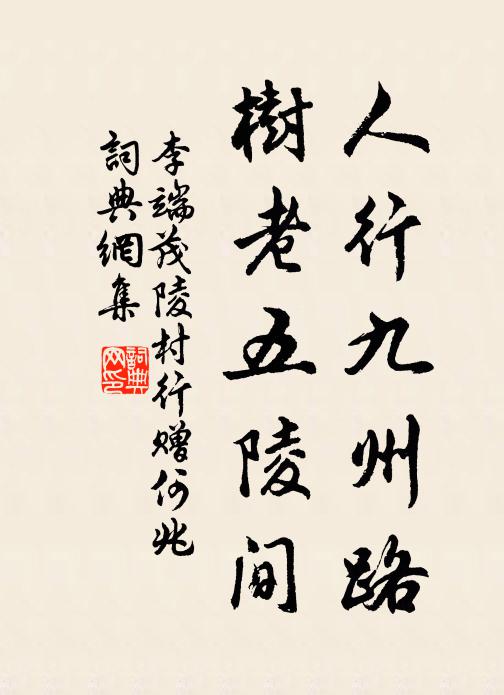 人行九州路
樹老五陵間
李端茂陵村行贈何兆
詞典網集
詞典
网印